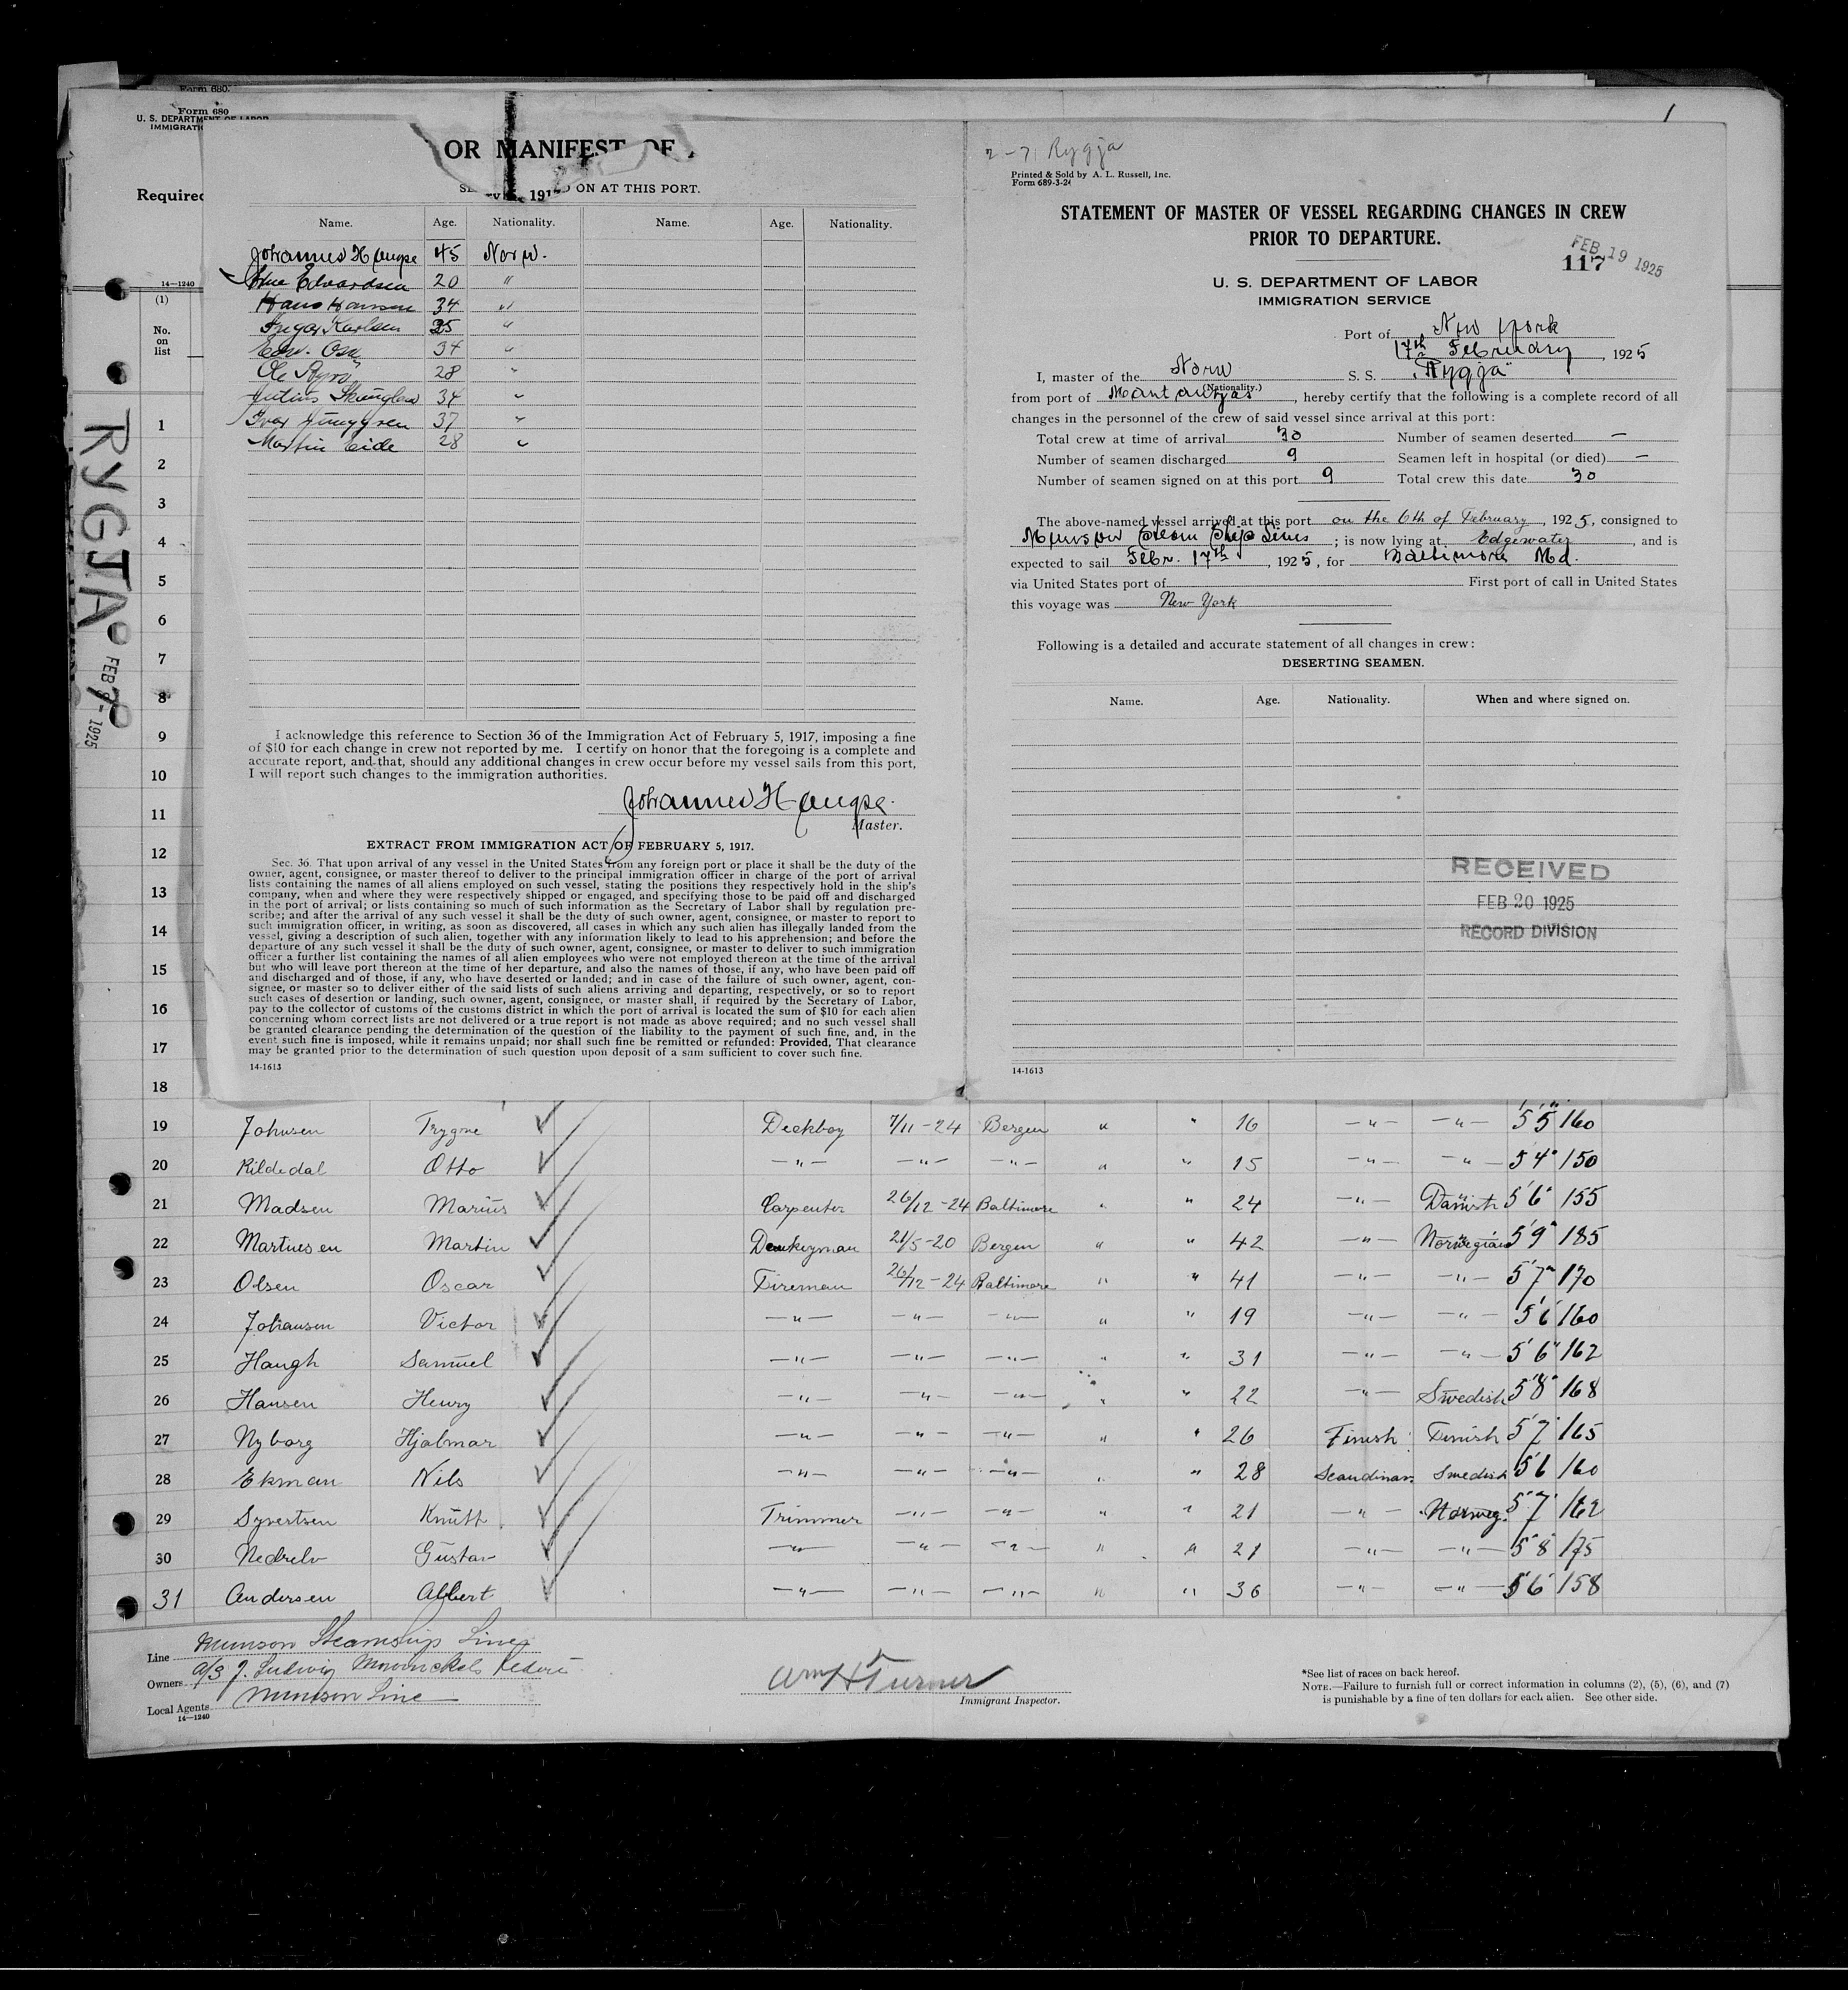 Form 680
Form 680
U. S. DEPARTMENT OF LABOR
IMMIGRATI
Required
14—1240
(1)
No.
on
list
RYGJA
FEB 1925
OR MANIFEST OF
ON AT THIS PORT.
Name. Age. Nationality. Name. Age. Nationality.
Johannes Haugse 45 Norw.
Arne Edvardsen 20 "
Hans Hansen 34 "
Karlsen 25 "
34 "
Ole 28 "
Julius 34 "
Ivar 37 "
Martin Eide 28 "
I acknowledge this reference to Section 36 of the Immigration Act of February 5, 1917, imposing a fine
of $10 for each change in crew not reported by me. I certify on honor that the foregoing is a complete and
accurate report, and that, should any additional changes in crew occur before my vessel sails from this port,
I will report such changes to the immigration authorities.
Johannes Haugse.
Master.
EXTRACT FROM IMMIGRATION ACT OF FEBRUARY 5, 1917.
Sec. 36. That upon arrival of any vessel in the United States from any foreign port or place it shall be the duty of the
owner, agent, consignee, or master thereof to deliver to the principal immigration officer in charge of the port of arrival
lists containing the names of all aliens employed on such vessel, stating the positions they respectively hold in the ship's
company, when and where they were respectively shipped or engaged, and specifying those to be paid off and discharged
in the port of arrival; or lists containing so much of such information as the Secretary of Labor shall by regulation pre-
scribe; and after the arrival of any such vessel it shall be the duty of such owner, agent, consignee, or master to report to
such immigration officer, in writing, as soon as discovered, all cases in which any such alien has illegally landed from the
vessel, giving a description of such alien, together with any information likely to lead to his apprehension; and before the
departure of any such vessel it shall be the duty of such owner, agent, consignee, or master to deliver to such immigration
officer a further list containing the names of all alien employees who were not employed thereon at the time of the arrival
but who will leave port thereon at the time of her departure, and also the names of those, if any, who have been paid off
and discharged and of those, if any, who have deserted or landed; and in case of the failure of such owner, agent, con-
signee, or master so to deliver either of the said lists of such aliens arriving and departing, respectively, or so to report
such cases of desertion or landing, such owner, agent, consignee, or master shall, if required by the Secretary of Labor,
pay to the collector of customs of the customs district in which the port of arrival is located the sum of $10 for each alien
concerning whom correct lists are not delivered or a true report is not made as above required; and no such vessel shall
be granted clearance pending the determination of the question of the liability to the payment of such fine, and, in the
event such fine is imposed, while it remains unpaid; nor shall such fine be remitted or refunded: Provided, That clearance
may be granted prior to the determination of such question upon deposit of a sum sufficient to cover such fine.
14-1613
1
2-7 Rygja
Printed & Sold by A. L. Russell, Inc.
Form 689-3-24
STATEMENT OF MASTER OF VESSEL REGARDING CHANGES IN CREW
PRIOR TO DEPARTURE.
FEB 19 1925
117
U. S. DEPARTMENT OF LABOR
IMMIGRATION SERVICE
Port of New York
17th February, 1925
I, master of the Norw S. S. "Rygja"
(Nationality.)
from port of , hereby certify that the following is a complete record of all
changes in the personnel of the crew of said vessel since arrival at this port:
Total crew at time of arrival 30 Number of seamen deserted —
Number of seamen discharged 9 Seamen left in hospital (or died) —
Number of seamen signed on at this port 9 Total crew this date 30
The above-named vessel arrived at this port on the 6th of February, 1925, consigned to
Munson Steam Ship Lines; is now lying at Edgewater, and is
expected to sail Febr. 17th, 1925, for Baltimore Md.
via United States port of First port of call in United States
this voyage was New York
Following is a detailed and accurate statement of all changes in crew:
DESERTING SEAMEN.
Name. Age. Nationality. When and where signed on.
RECEIVED
FEB 20 1925
RECORD DIVISION
14-1613
1
2
3
4
5
6
7
8
9
10
11
12
13
14
15
16
17
18
19 Johnsen Trygve Deckboy 7/11-24 Bergen " " 16 —"— —"— 5'5" 160
20 Kildedal Otto —"— —"— —"— " " 15 —"— —"— 5'4" 150
21 Madsen Marius Carpenter 26/12-24 Baltimore " " 24 —"— Danish 5'6" 155
22 Martinsen Martin Donkeyman 21/5-20 Bergen " " 42 —"— Norwegian 5'9" 185
23 Olsen Oscar Fireman 26/12-24 Baltimore " " 41 —"— —"— 5'7" 170
24 Johansen Victor —"— —"— —"— " " 19 —"— —"— 5'6 160
25 Haugh Samuel —"— —"— —"— " " 31 —"— —"— 5'6" 162
26 Hansen Henry —"— —"— —"— " " 22 —"— Swedish 5'8" 168
27 Nyborg Hjalmar —"— —"— —"— " " 26 Finish Finish 5'7" 165
28 Ekman Nils —"— —"— —"— " " 28 Scandinav. Swedish 5'6 160
29 Syvertsen Knutt Trimmer —"— —"— " " 21 —"— Norweg. 5'7" 162
30 Nedrelv Gustav —"— —"— —"— " " 21 —"— —"— 5'8 175
31 Andersen Albert —"— —"— —"— " " 36 —"— —"— 5'6" 158
Line Munson Steamship Line
Owners A/S J. Ludwig Mowinckels Rederi
Local Agents Munson Line
14—1240
Wm H Turner
Immigrant Inspector.
*See list of races on back hereof.
NOTE.—Failure to furnish full or correct information in columns (2), (5), (6), and (7)
is punishable by a fine of ten dollars for each alien. See other side.